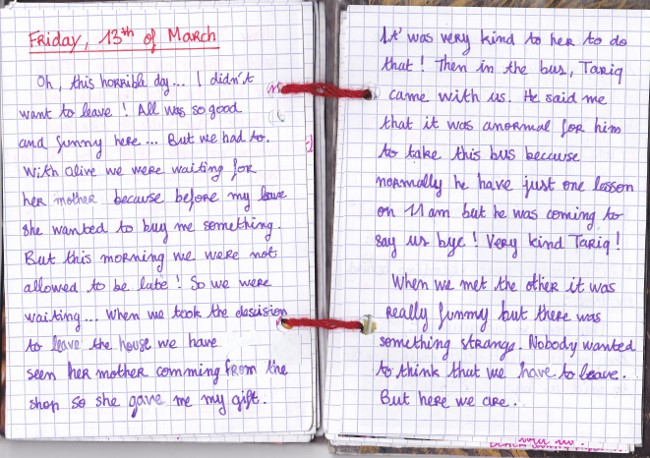 Friday, 13th of March
Oh, this horrible day... I didn't
want to leave ! All was so good
and funny here... But we had to.
With alive we were waiting for
her mother because before my leave
she wanted to buy me something.
But this morning we were not
allowed to be late ! So we were
waiting... When we took the descision
to leave the house we have
seen her mother comming from the
shop so she gave me my gift.
It was very kind to her to do
that ! Then in the bus, Tariq
came with us. He said me
that it was anormal for him
to take this bus because
normally he have just one lesson
on 11 am but he was coming to
say us bye ! Very kind Tariq !
When we met the other it was
really funny but there was
something strange. Nobody wanted
to think that we have to leave.
But here we are.